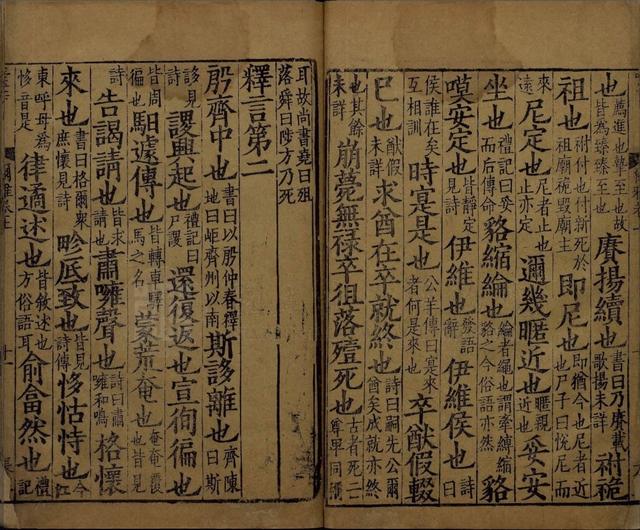 也薦進也摯至也故皆為臻臻至也賡揚續也書曰乃賡載歌揚未詳祔祪
祖也祔付也付新死於祖廟祪毀廟主即尼也即猶今也尼者近也尸子曰悅尼而
來遠尼定也尼者止也止亦定邇幾暱近也暱親近也妥安
坐也禮記曰妥而后傳命貉縮綸也綸者繩也謂牽縛縮貉之今俗語亦然貉
嗼安定也皆靜定伊維也發語辭伊維侯也詩曰
侯誰在矣互相訓時寔是也公羊傳曰寔來者何是來也卒猷假輟
已也猷假未詳求酋在卒就終也詩曰嗣先公爾酋矣成就亦終
也其餘未詳崩薨無祿卒徂落殪死也古者死亡尊卑同稱
耳故尚書堯曰殂落舜曰陟方乃死
釋言第二
殷齊中也書曰以殷仲春釋地曰岠齊州以南斯誃離也齊陳曰斯
誃見詩謖興起也禮記曰尸謖還復返也宣徇徧
也皆周徧也馹遽傳也皆轉車驛馬之名蒙荒奄也奄奄覆也皆見
詩告謁請也皆求請也肅噰聲也詩曰肅噰和鳴格懷
來也書曰格爾眾庶懷見詩畛厎致也皆見詩傳恀怙恃也今江
東呼母為恀音是律遹述也皆敘述也方俗語耳俞畣然也禮記